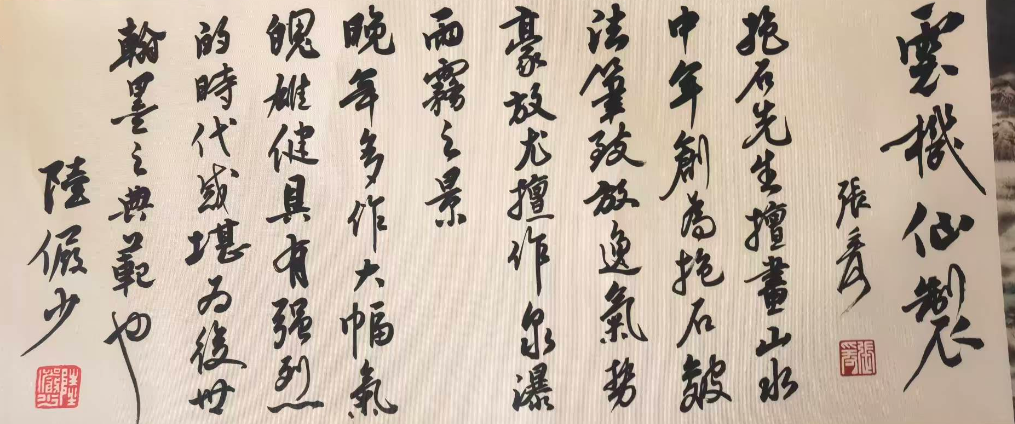 雲機仙製
張爰
抱石先生擅畫山水
中年創為抱石皴
法筆致放逸氣勢
豪放尤擅作泉瀑
雨霧之景
晚年多作大幅氣
魄雄健具有强烈
的時代感堪为後世
翰墨之典範也
陸儼少